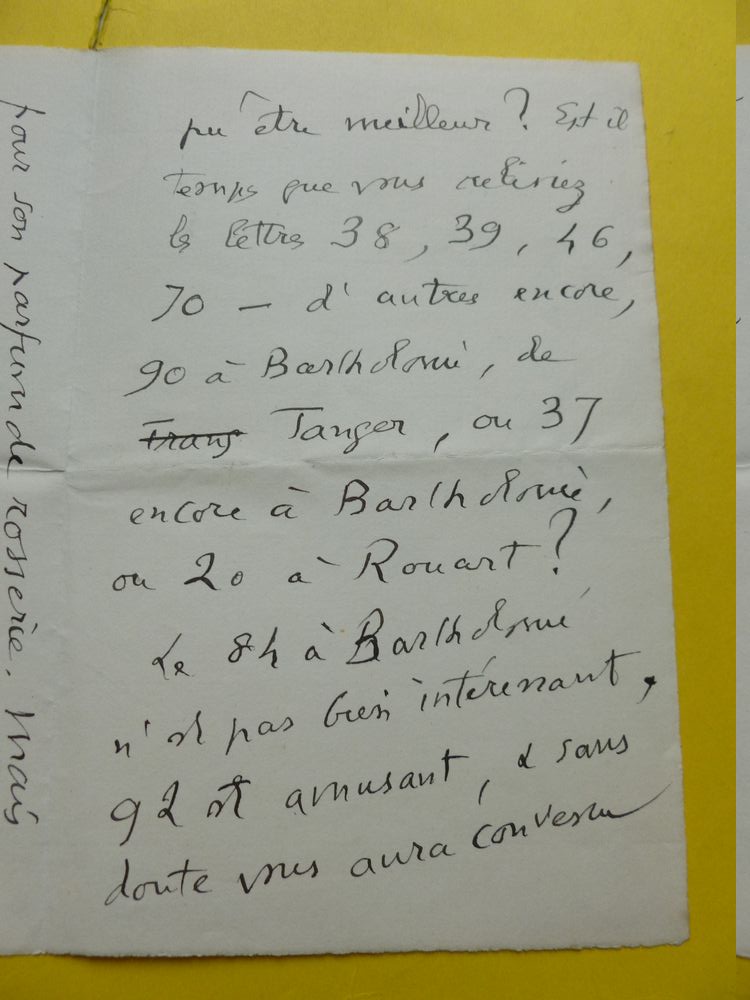 pu être meilleur ? Est il
temps que vous relisiez
les lettres 38, 39, 46,
70 — d'autres encore,
90 à Bartholomé, de
Trang Tanger, ou 37
encore à Bartholomé,
ou 20 à Rouart ?
Le 84 à Bartholomé
n'est pas bien intéressant,
92 est amusant, & sans
doute vous aura convenu
pour son parfum de rosserie. Mais